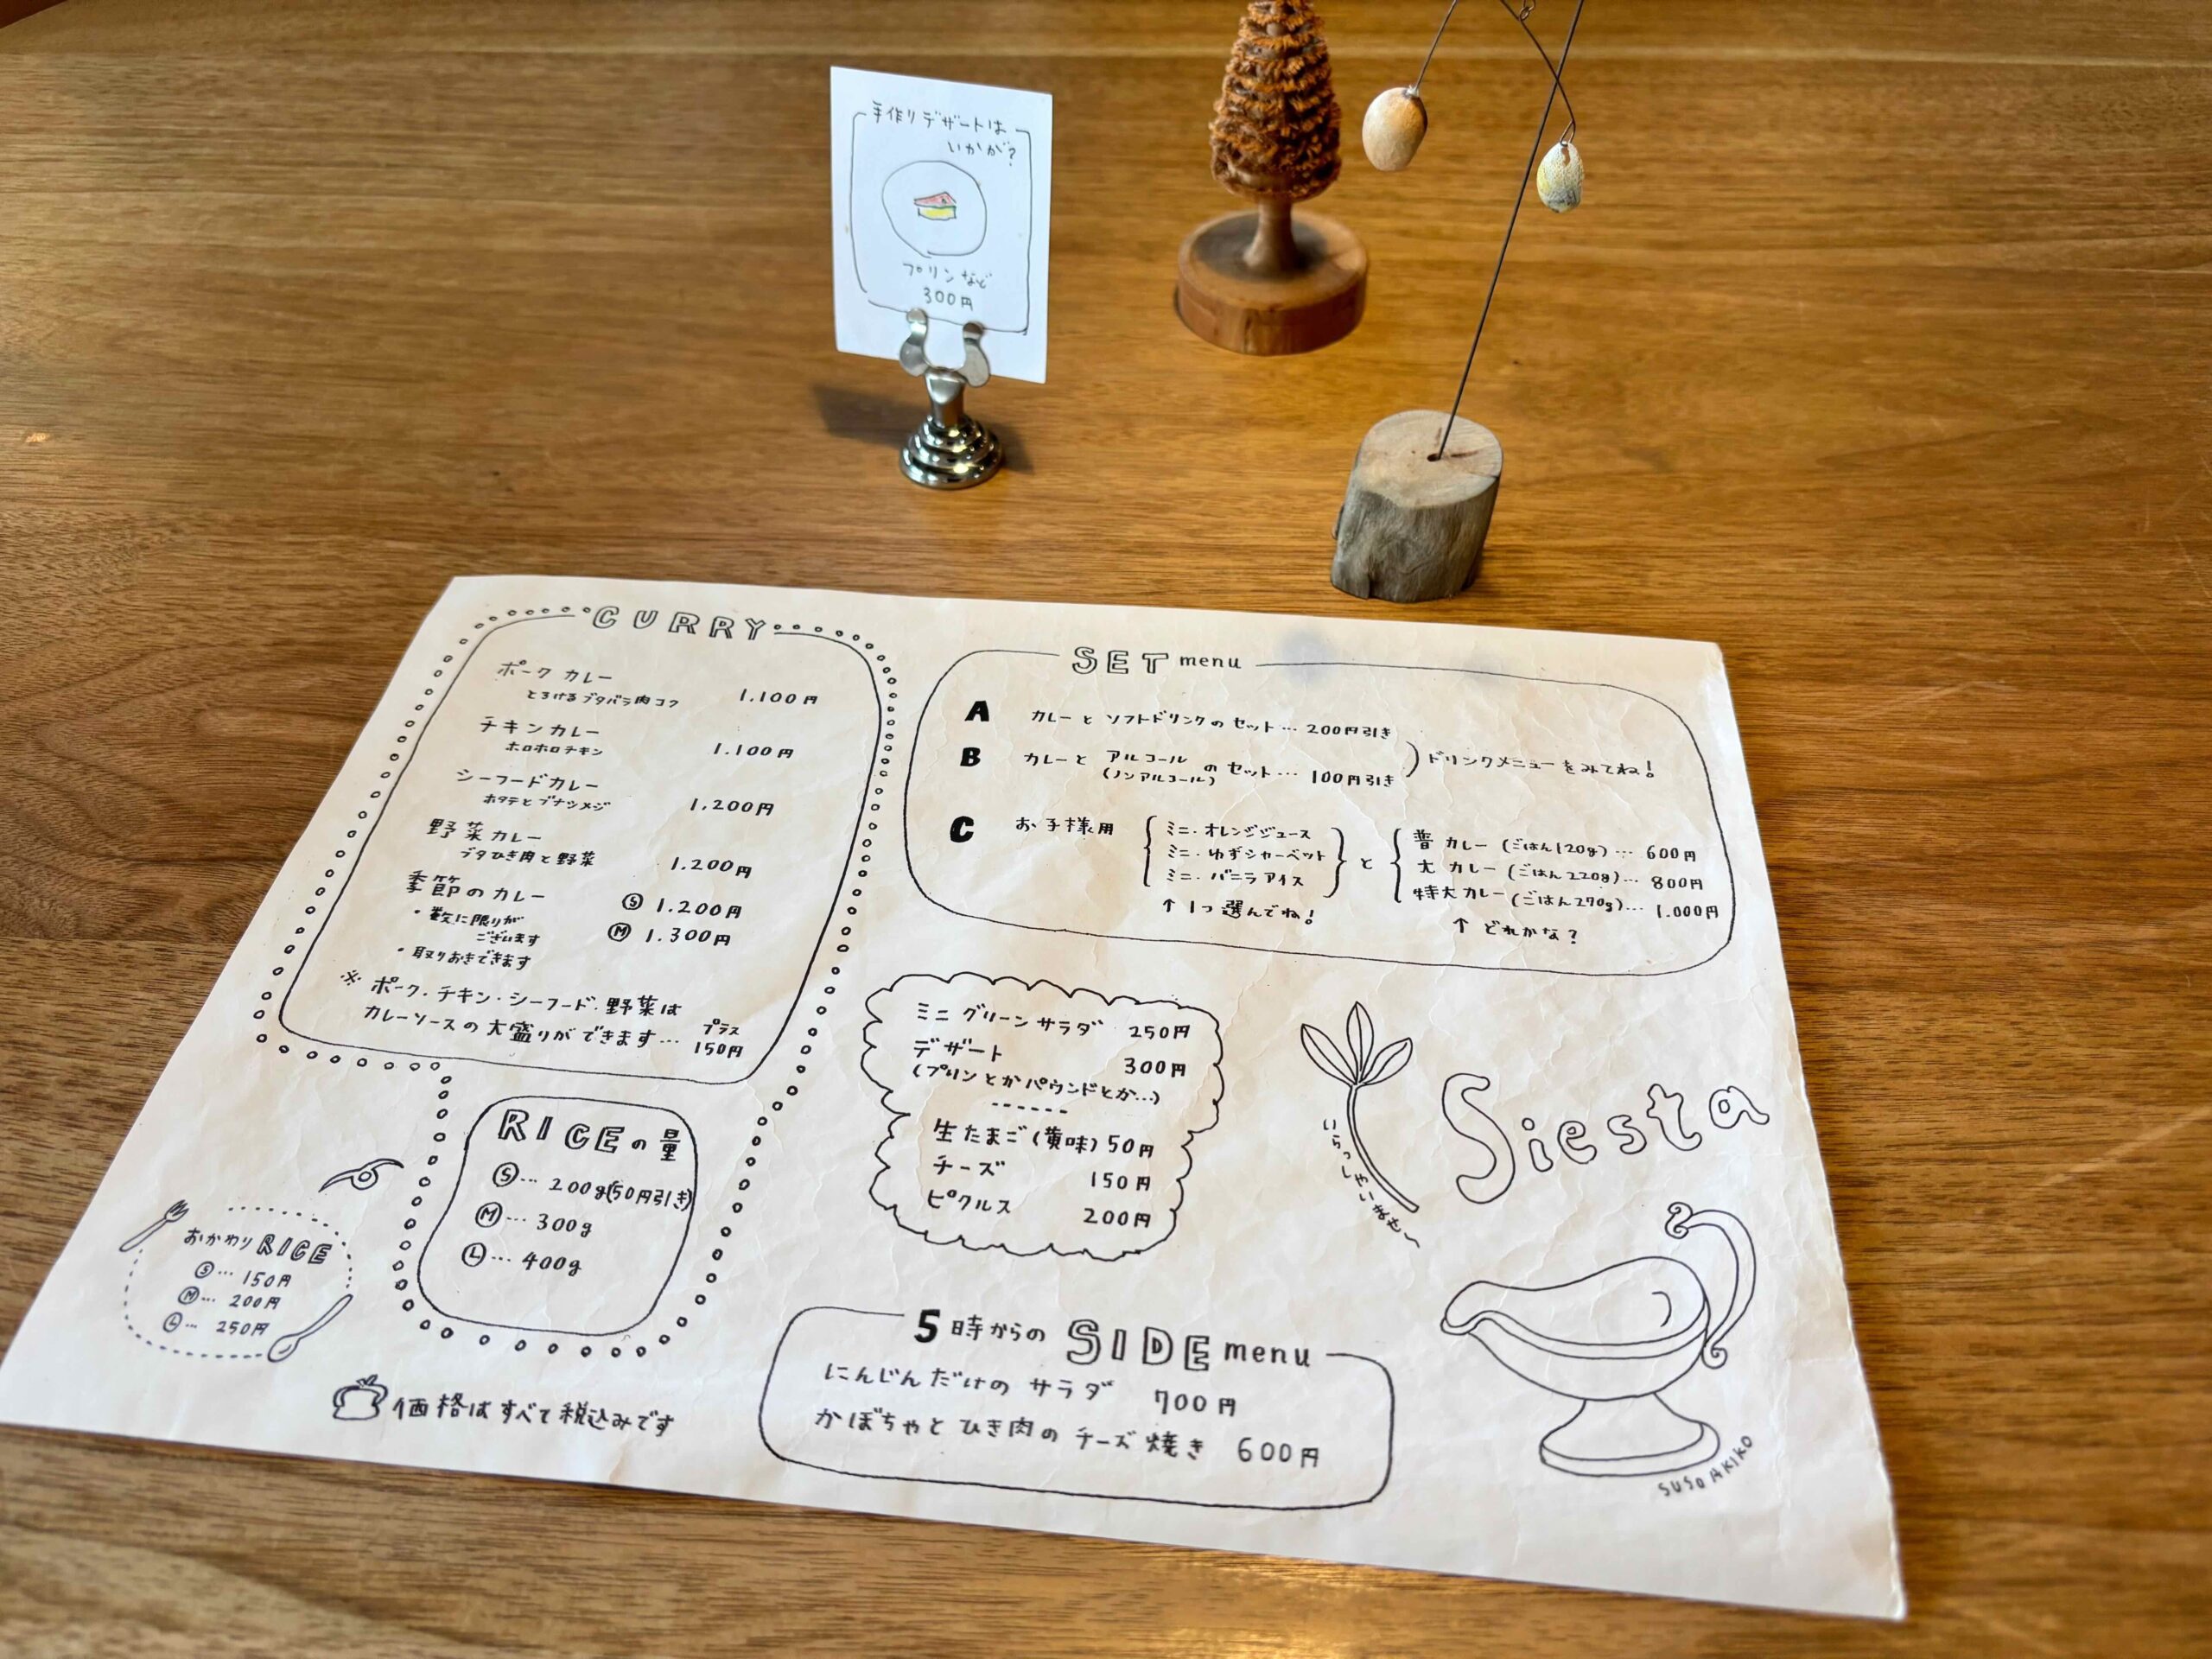 手作りデザートは
いかが?
プリンなど
300円
CURRY
ポークカレー
とろけるブタバラ肉コク 1.100円
チキンカレー
ホロホロチキン 1.100円
シーフードカレー
ホタテとブナシメジ 1.200円
野菜カレー
ブタひき肉と野菜 1.200円
季節のカレー Ⓢ 1.200円
・数に限りが
ございます Ⓜ 1.300円
・取りおきできます
※ ポーク・チキン・シーフード・野菜は
カレーソースの大盛りができます… プラス
150円
RICEの量
Ⓢ… 200g(50円引き)
Ⓜ… 300g
Ⓛ… 400g
おかわりRICE
Ⓢ… 150円
Ⓜ… 200円
Ⓛ… 250円
価格はすべて税込みです
SET menu
A カレーとソフトドリンクのセット… 200円引き
B カレーとアルコール(ノンアルコール)のセット… 100円引き
ドリンクメニューをみてね!
C お子様用
ミニ・オレンジジュース
ミニ・ゆずシャーベット
ミニ・バニラアイス
↑ 1つ選んでね!
と
普カレー(ごはん120g)… 600円
大カレー(ごはん220g)… 800円
特大カレー(ごはん270g)… 1.000円
↑ どれかな?
ミニグリーンサラダ 250円
デザート 300円
(プリンとかパウンドとか…)
------
生たまご(黄味) 50円
チーズ 150円
ピクルス 200円
いらっしゃいませ〜
Siesta
5時からのSIDE menu
にんじんだけのサラダ 700円
かぼちゃとひき肉のチーズ焼き 600円
SUSO AKIKO